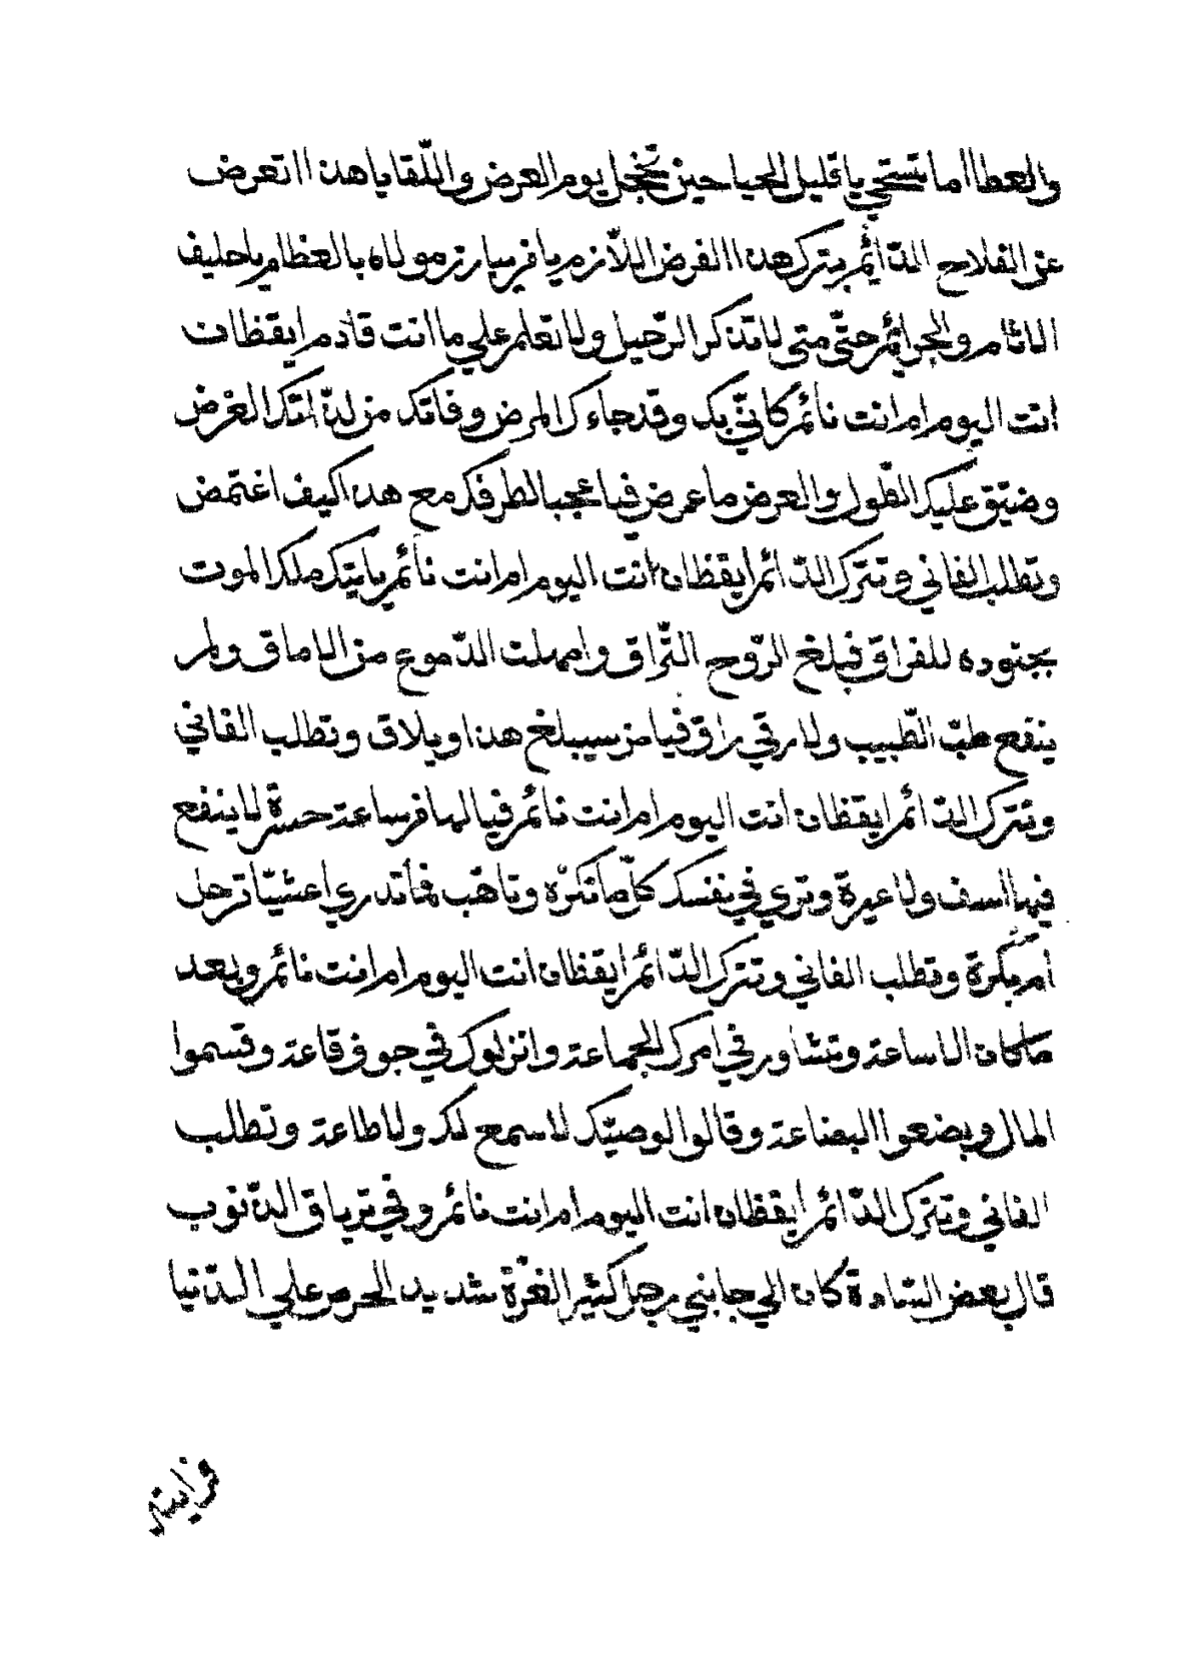 والعطا اما تستحي يا قليل الحيا حين تخجل يوم العرض واللّقا يا هذا اتعرض
عن الفلاح الدّائم بترك هذا الفرض اللّازم يا فر مبارز مولاه بالعظايم يا حليف
الاثام والجرائم حتّى متى لا تذكر الرّحيل ولا تعلم علي ما انت قادم ايقظان
انت اليوم ام انت نائم كانّي بك وقد جاءك المرض وفاتك من لذّاتك الغرض
وضيّق عليك الطّول والعرض ما عرض فيا عجبا لطرفك مع هذا كيف اغتمض
وتطلب الفاني وتترك الدّائم ايقظان انت اليوم ام انت نائم يابيتك ملك الموت
بجنوده للفراق فبلغ الرّوح التّراق وامهلت الدّموع من الاماق ولم
ينفع طبّ الطّبيب ولا رقي راق فيا من سيبلغ هذا ويلاق وتطلب الفاني
وتترك الدّائم ايقظان انت اليوم ام انت نائم فيا لها من ساعة حسرة لا ينفع
فيها اسف ولا عبرة وتري في نفسك كلّ ما تكره وتاهّب فما تدري اعشيّا ترحل
ام بكرة وتطلب الفاني وتترك الدّائم ايقظان انت اليوم ام انت نائم وبعد
ما كان الا ساعة وتشاور في امرك الجماعة وانزلوك في جوف قاعة وقسموا
المال وبضعوا البضاعة وقالوا لوصيّتك لا سمع لك ولا طاعة وتطلب
الفاني وتترك الدّائم ايقظان انت اليوم ام انت نائم وفي ترياق الذّنوب
قال بعض السّادة كان الي جانبي رجل كثير الغرّة شديد الحرص علي الدّنيا
فرايته